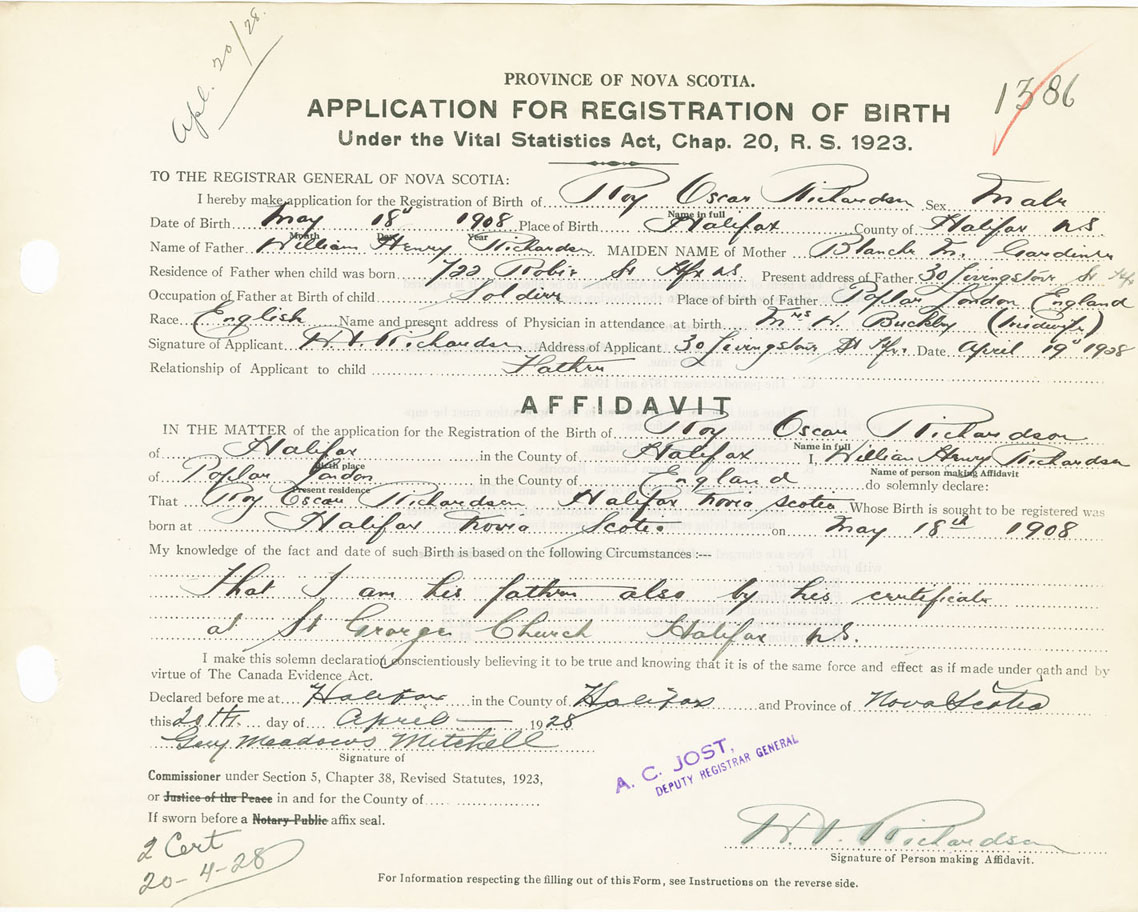 Apl. 20/28.
PROVINCE OF NOVA SCOTIA.
1386
APPLICATION FOR REGISTRATION OF BIRTH
Under the Vital Statistics Act, Chap. 20, R. S. 1923.
TO THE REGISTRAR GENERAL OF NOVA SCOTIA:
I hereby make application for the Registration of Birth of Roy Oscar Richardson Sex Male
Name in full
Date of Birth May 18th 1908 Place of Birth Halifax County of Halifax N.S.
Month Day Year
Name of Father William Henry Richardson MAIDEN NAME of Mother Blanch M. Gardener
Residence of Father when child was born 722 Robie St Hfx N.S. Present address of Father 30 Livingstone St Hfx
Occupation of Father at Birth of child Soldier Place of birth of Father Poplar London England
Race English Name and present address of Physician in attendance at birth Mrs H. Buckby (midwife)
Signature of Applicant Richardson Address of Applicant 30 Livingstone St Hfx. Date April 19th 1928
Relationship of Applicant to child Father
AFFIDAVIT
IN THE MATTER of the application for the Registration of the Birth of Roy Oscar Richardson
Name in full
of Halifax in the County of Halifax I, William Henry Richardson
Birth place Name of person making Affidavit
of Poplar London in the County of England do solemnly declare:
Present residence
That Roy Oscar Richardson Halifax Nova Scotia Whose Birth is sought to be registered was
born at Halifax Nova Scotia on May 18th 1908
My knowledge of the fact and date of such Birth is based on the following Circumstances :---
That I am his father also by his certificate
at St George Church Halifax N.S.
I make this solemn declaration conscientiously believing it to be true and knowing that it is of the same force and effect as if made under oath and by
virtue of The Canada Evidence Act.
Declared before me at Halifax in the County of Halifax and Province of Nova Scotia
this 20th. day of April 1928
Meadows Mitchell
Signature of
A. C. JOST,
DEPUTY REGISTRAR GENERAL
Commissioner under Section 5, Chapter 38, Revised Statutes, 1923,
or Justice of the Peace in and for the County of
If sworn before a Notary Public affix seal.
Richardson
Signature of Person making Affidavit.
2 Cert
20-4-28
For Information respecting the filling out of this Form, see Instructions on the reverse side.